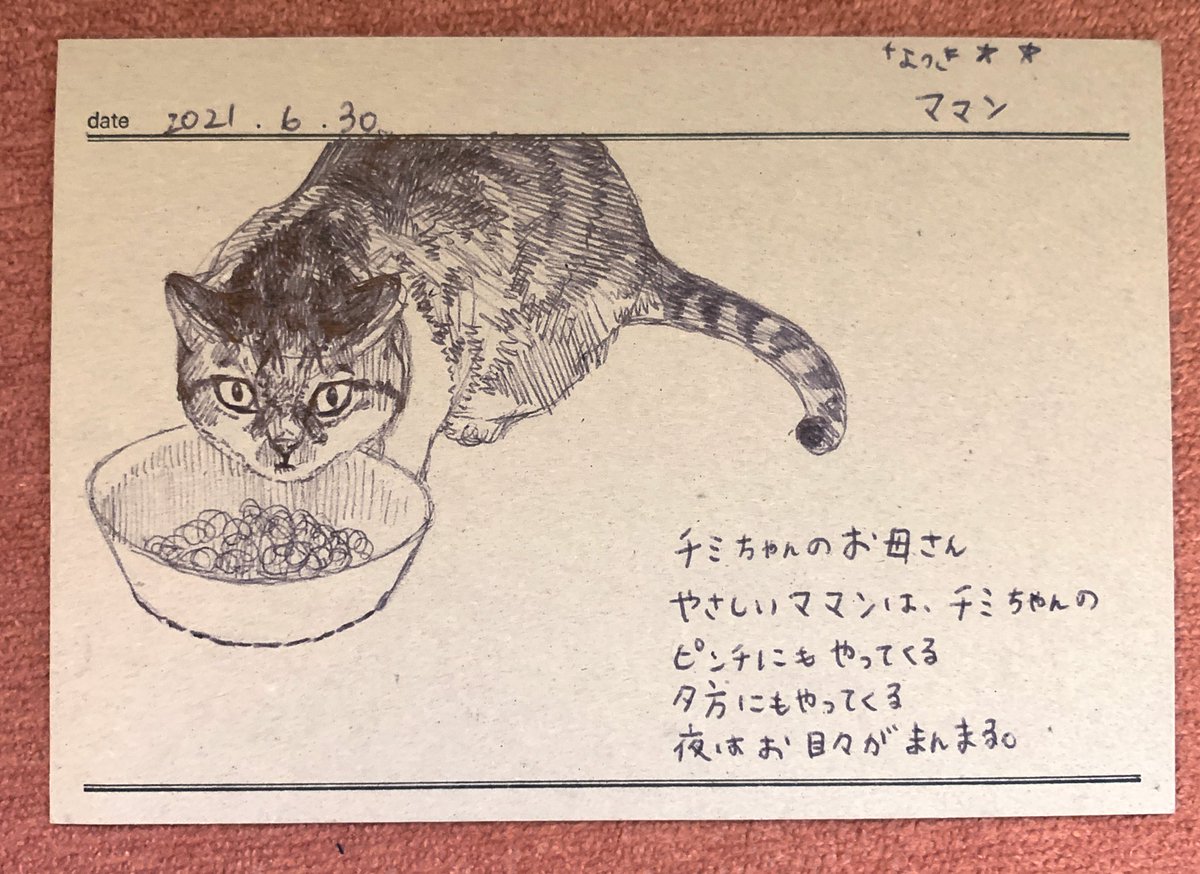 なつき ★ ★
ママン
date 2021.6.30
チミちゃんのお母さん
やさしいママンは、チミちゃんの
ピンチにもやってくる
夕方にもやってくる
夜はお目々がまんまる。